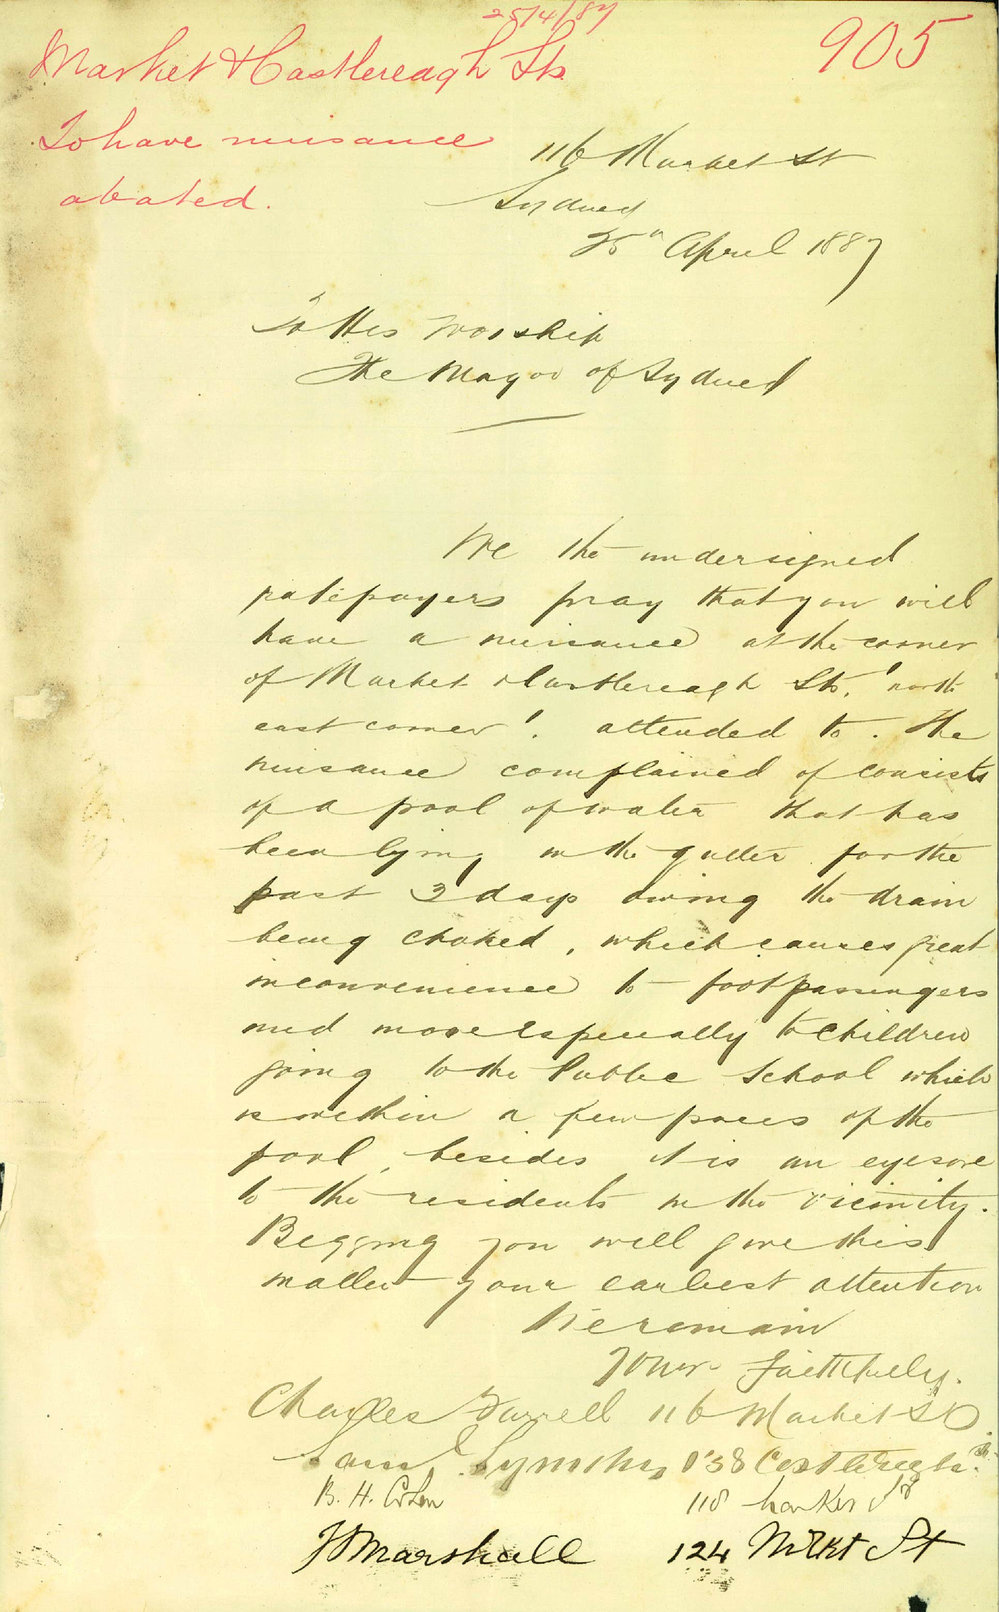 25/4/87
905
Market & Castlereagh Sts
To have nuisance
abated.
116 Market St
Sydney
25th April 1887
To His Worship
The Mayor of Sydney
We the undersigned
ratepayers pray that you will
have a nuisance at the corner
of Market & Castlereagh Sts, 'north
east corner'. attended to. The
nuisance complained of consists
of a pool of water that has
been lying in the gutter for the
past 3 days owing the drain
being choked, which causes great
inconvenience to foot passengers
and more especially to children
going to the Public School which
is within a few paces of the
pool, besides it is an eyesore
to the residents in the vicinity.
Begging you will give this
matter your earliest attention
We remain
Your Faithfully.
Charles Farrell 116 Market St
Saml. 138 Castlereagh St.
B. H. Cohen 118 Market St
Marshall 124 Mrkt St